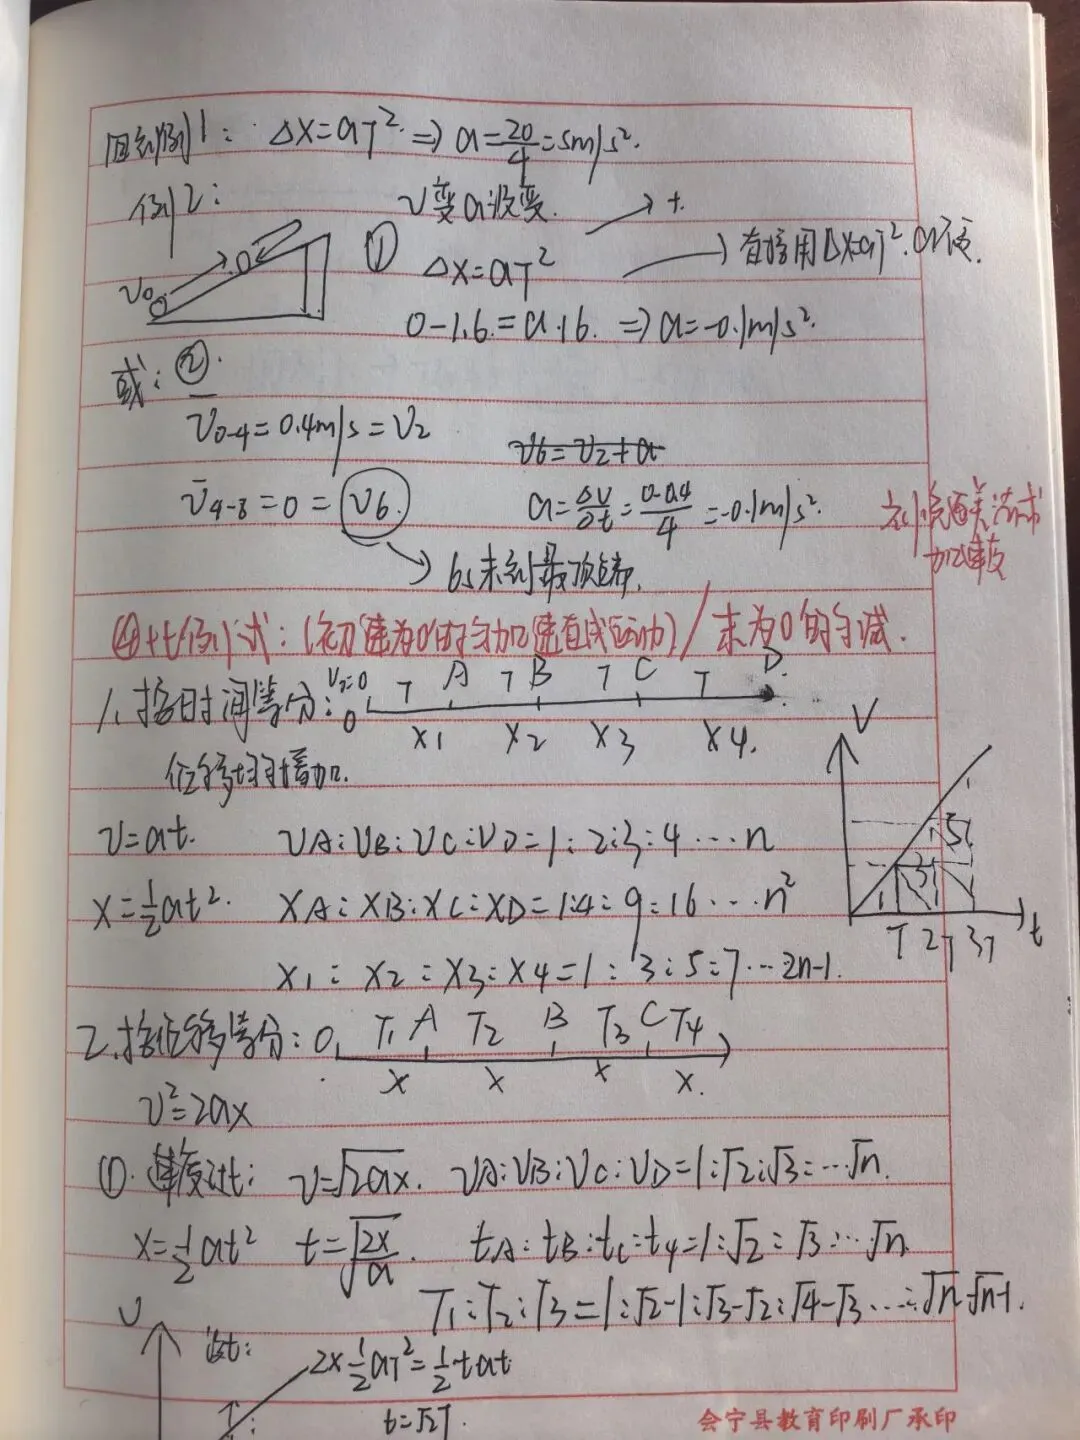 例1: ΔX=aT² ⇒ a=20/4=5m/s².
例2: V变a没变.
V₀
① ΔX=aT² → 直接用ΔX=aT².
0-1.6=a·16. ⇒ a=-0.1m/s².
或: ②
V₀₋₄=0.4m/s=V₂
V6=V2+at
V̄₄₋₈=0=V6. a=ΔV/Δt=(0-0.4)/4=-0.1m/s².
加速度
→6s末到最顶端.
比例式: (初速为0的匀加速直线运动)/末为0的匀减.
V₀=0 T A T B T C T D
1. 按时间等分: 0
X1 X2 X3 X4.
位移均匀增加.
V
V=at. VA:VB:VC:VD=1:2:3:4…n
X=½at². XA:XB:XC:XD=1:4:9:16…n²
1 3 5
T 2T 3T t
X1:X2:X3:X4=1:3:5:7…2n-1.
2. 按位移等分: 0 T1 A T2 B T3 C T4
X X X X.
V²=2ax
①. 速度比: V=√2ax. VA:VB:VC:VD=1:√2:√3:…√n.
X=½at² t=√(2x/a). tA:tB:tC:t4=1:√2:√3…√n.
T1:T2:T3=1:√2-1:√3-√2:√4-√3…:√n-√n-1.
V
2×½aT²=½t·at
t=√2T.
会宁县教育印刷厂承印